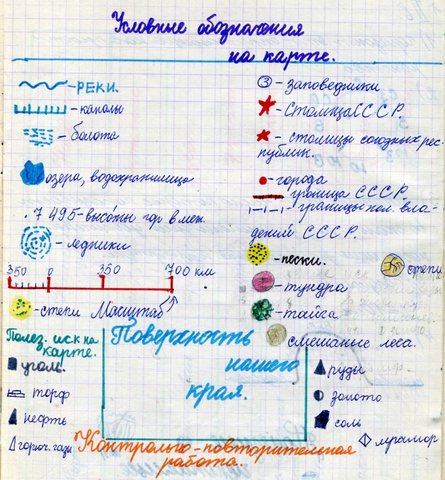 Условные обозначения
на карте.
-реки.
-каналы
-болота
озера, водохранилища
. 7495-высоты гор в мет.
-ледники
350 0 350 700 км
Масштаб
-степи
③-заповедники
-Столица СССР.
-столицы союзных рес-
публик.
-города
граница СССР.
-границы пол. вла-
дений СССР.
-пески.
степи
-тундра
-тайга
смешаные леса.
Полез. иск на
карте.
уголь
торф
нефть
горюч. газы
Поверхность
нашего
края.
руды
золото
соль
мрамор
Контрольно-повторительная
работа.